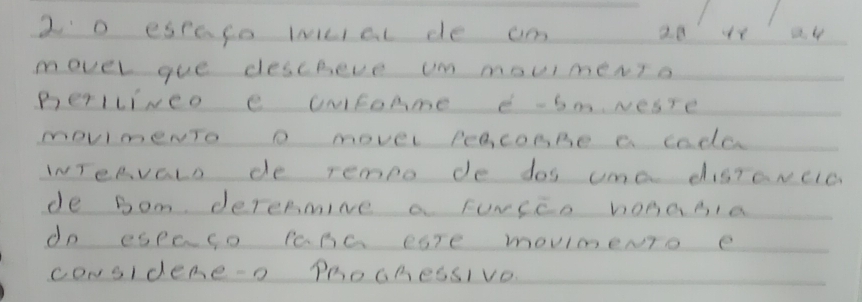 2. O espaço inicial de um 20/11/24
movel que descreve um movimento
Retilíneo e uniforme é -5m. neste
movimento o movel percorre a cada
intervalo de tempo de dos uma distancia
de 50m. determine a função horaria
do espaço para este movimento e
considere-o progressivo.